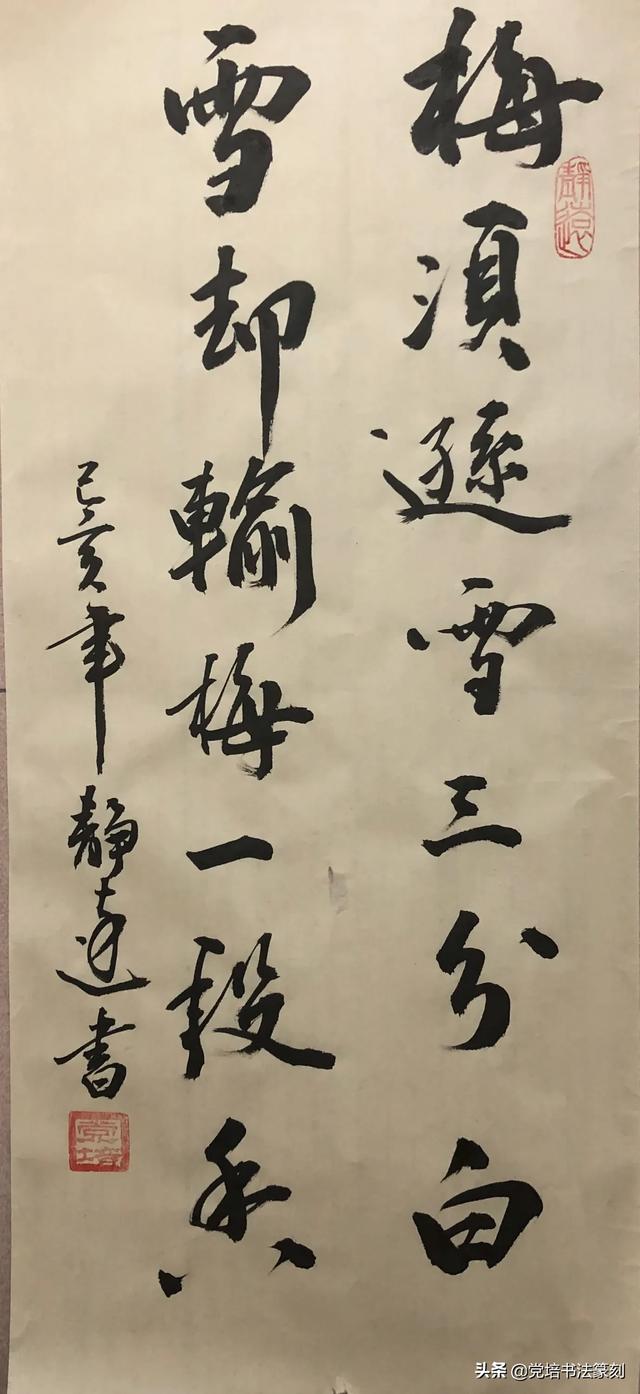 梅須遜雪三分白
雪却輸梅一段香
己亥年靜遠書
靜遠
党培
头条 @党培书法篆刻